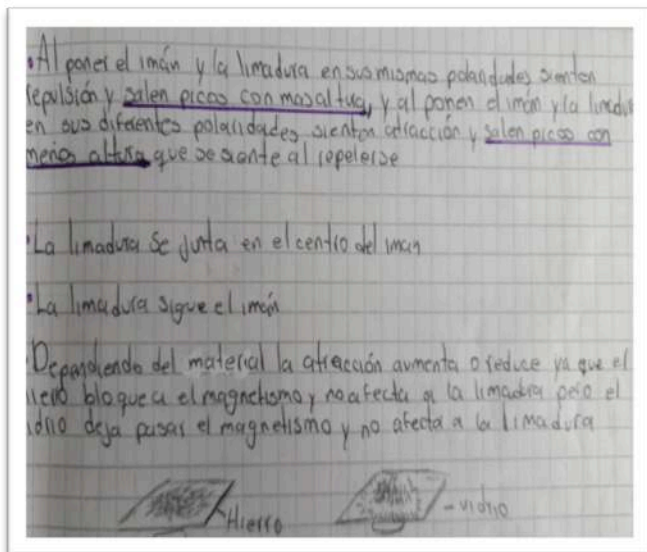 •Al poner el imán y la limadura en sus mismas polaridades sienten
repulsión y salen picos con mas altura, y al ponen el imán y la limadur
en sus diferentes polaridades sienten atracción y salen picos con
menos altura que se siente al repelerse
•La limadura se junta en el centro del iman
•La limadura sigue el imán
Dependiendo del material la atracción aumenta o reduce ya que el
ierro bloquea el magnetismo y no afecta a la limadura pero el
idrio deja pasar el magnetismo y no afecta a la limadura
Hierro
-vidrio